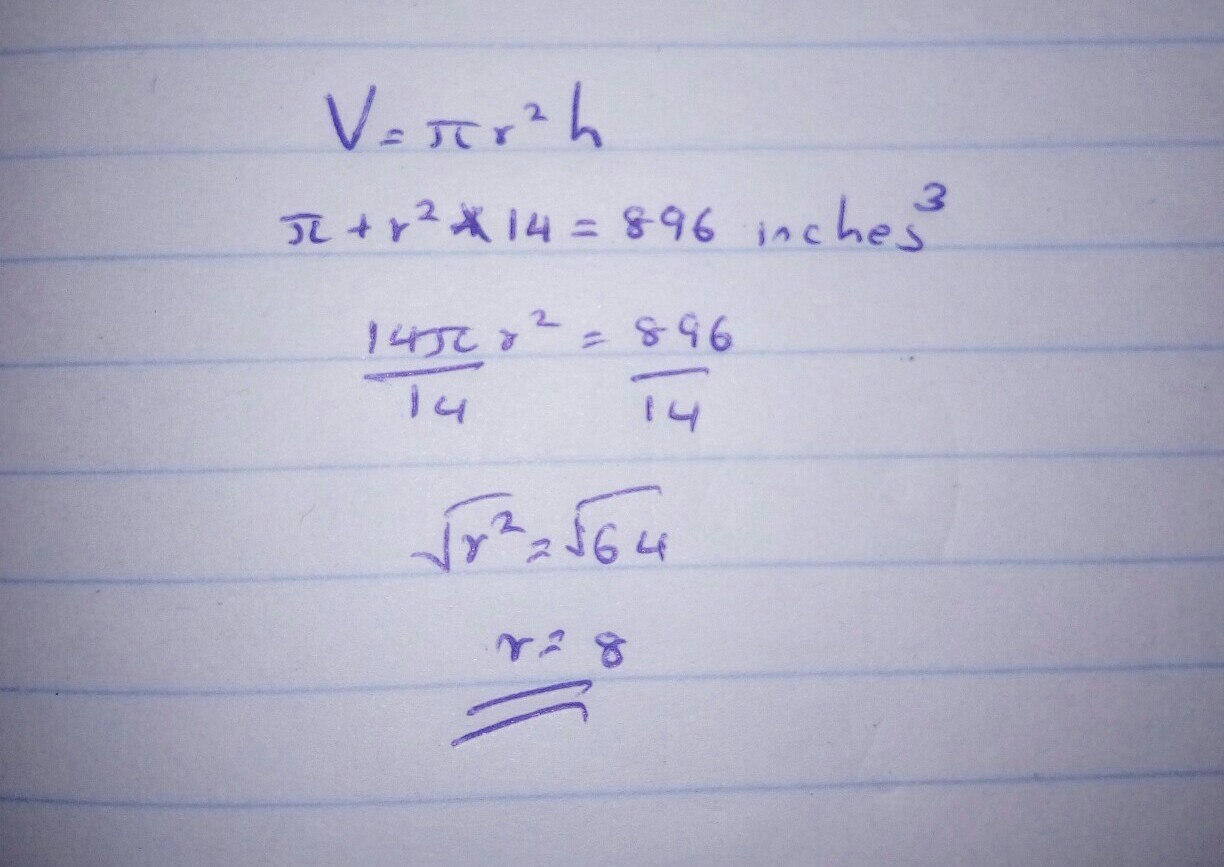 V = πr²h
π + r² * 14 = 896 inches³
14π r² = 896
14 14
√r² = √64
r = 8